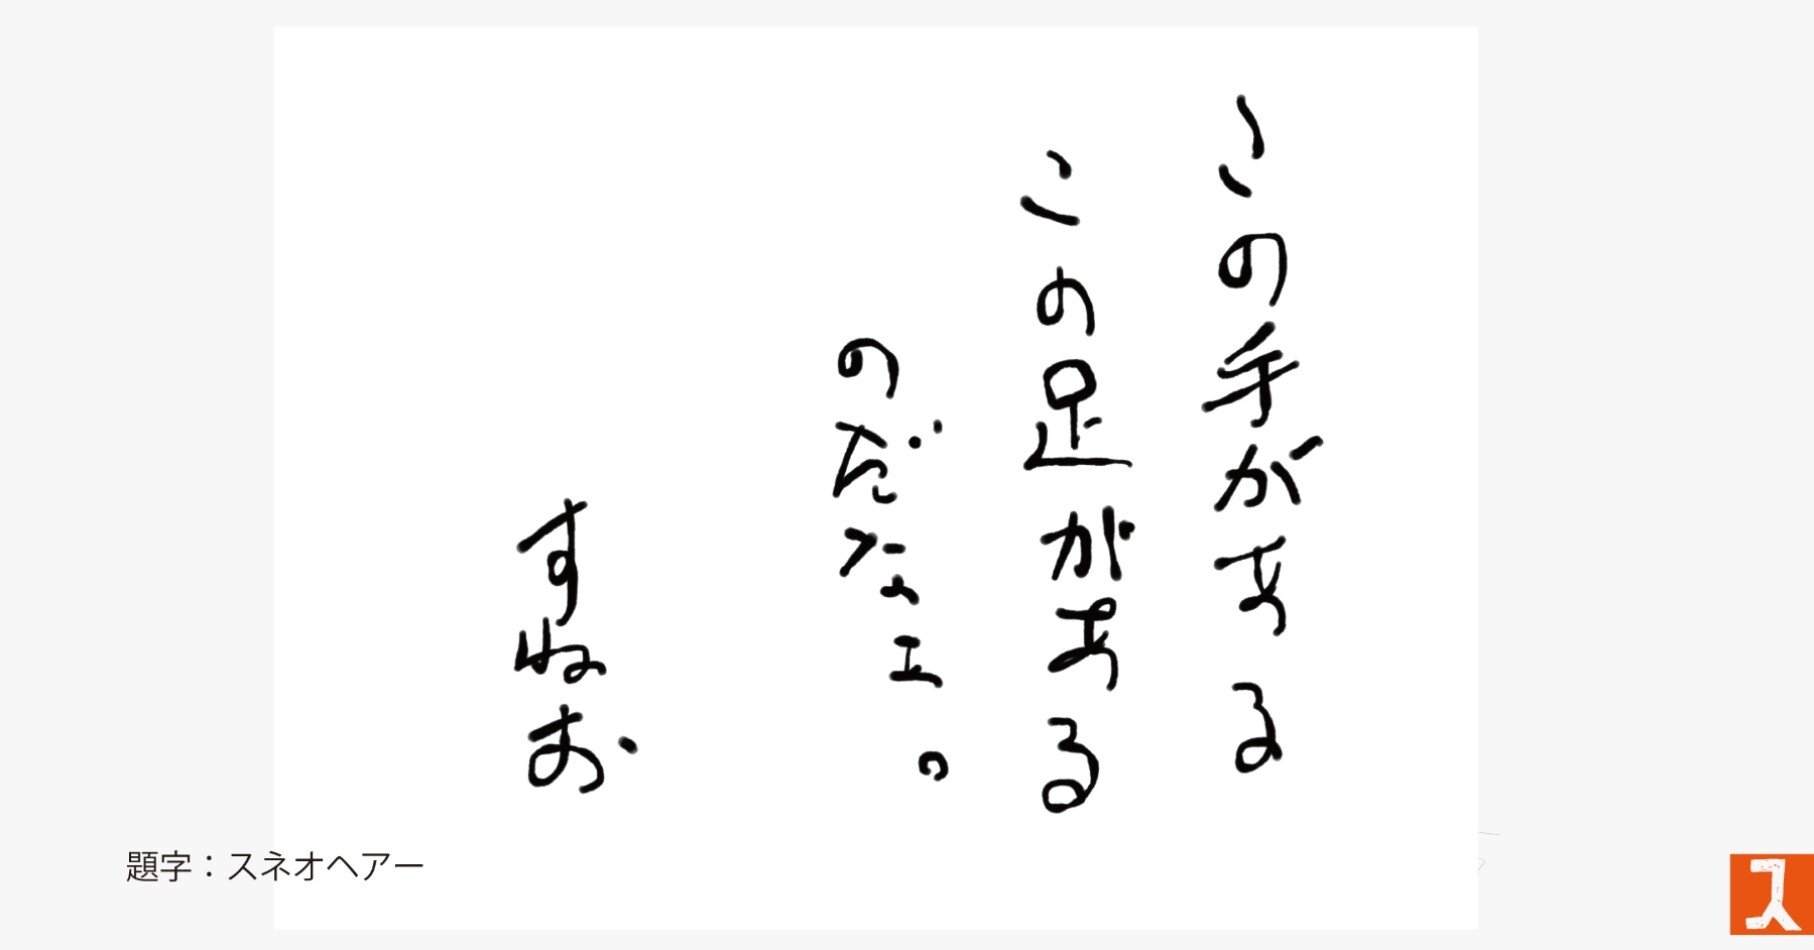 この手がある
この足がある
のだなェ。
すねお
題字：スネオヘアー
ス